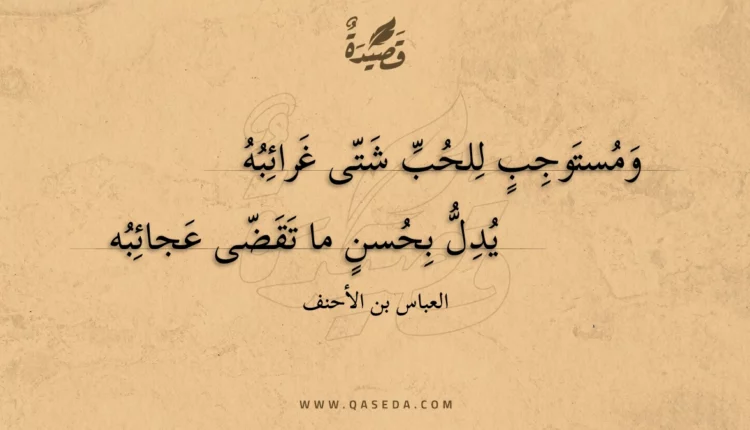 قَصِيْدَةٌ
وَمُستَوجِبٍ لِلحُبِّ شَتّى غَرائِبُهُ
يُدِلُّ بِحُسنٍ ما تَقَضّى عَجائِبُه
العباس بن الأحنف
WWW.QASEDA.COM